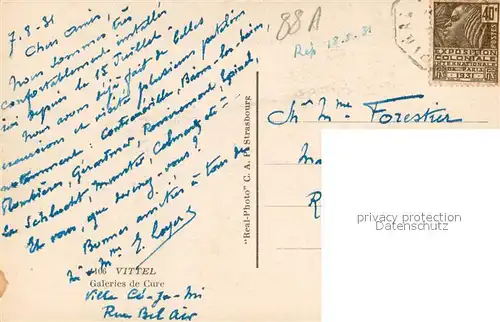 7-8-31
Chers Amis,
Nous sommes très
confortablement installés
ici depuis le 15 Juillet.
Nous avons déjà fait de belles
excursions et visité plusieurs patelins
notamment : Contrexéville, Bains-les-bains,
Plombières, Gérardmer, Remiremont, Epinal,
La Schlucht, Munster, Colmar, etc -
Et vous, que devenez-vous ?
Bonnes amitiés à tous de
Mr & Mme E.
1106 VITTEL
Galeries de Cure
Villa Cé-Ja-Mi
Rue Bel Air
"Real-Photo" C. A. P. Strasbourg
88A
Rép 18-8-31
40c
POSTES
EXPOSITION
COLONIALE
INTERNATIONALE
PARIS
1931
Mr Mme Forestier
privacy protection